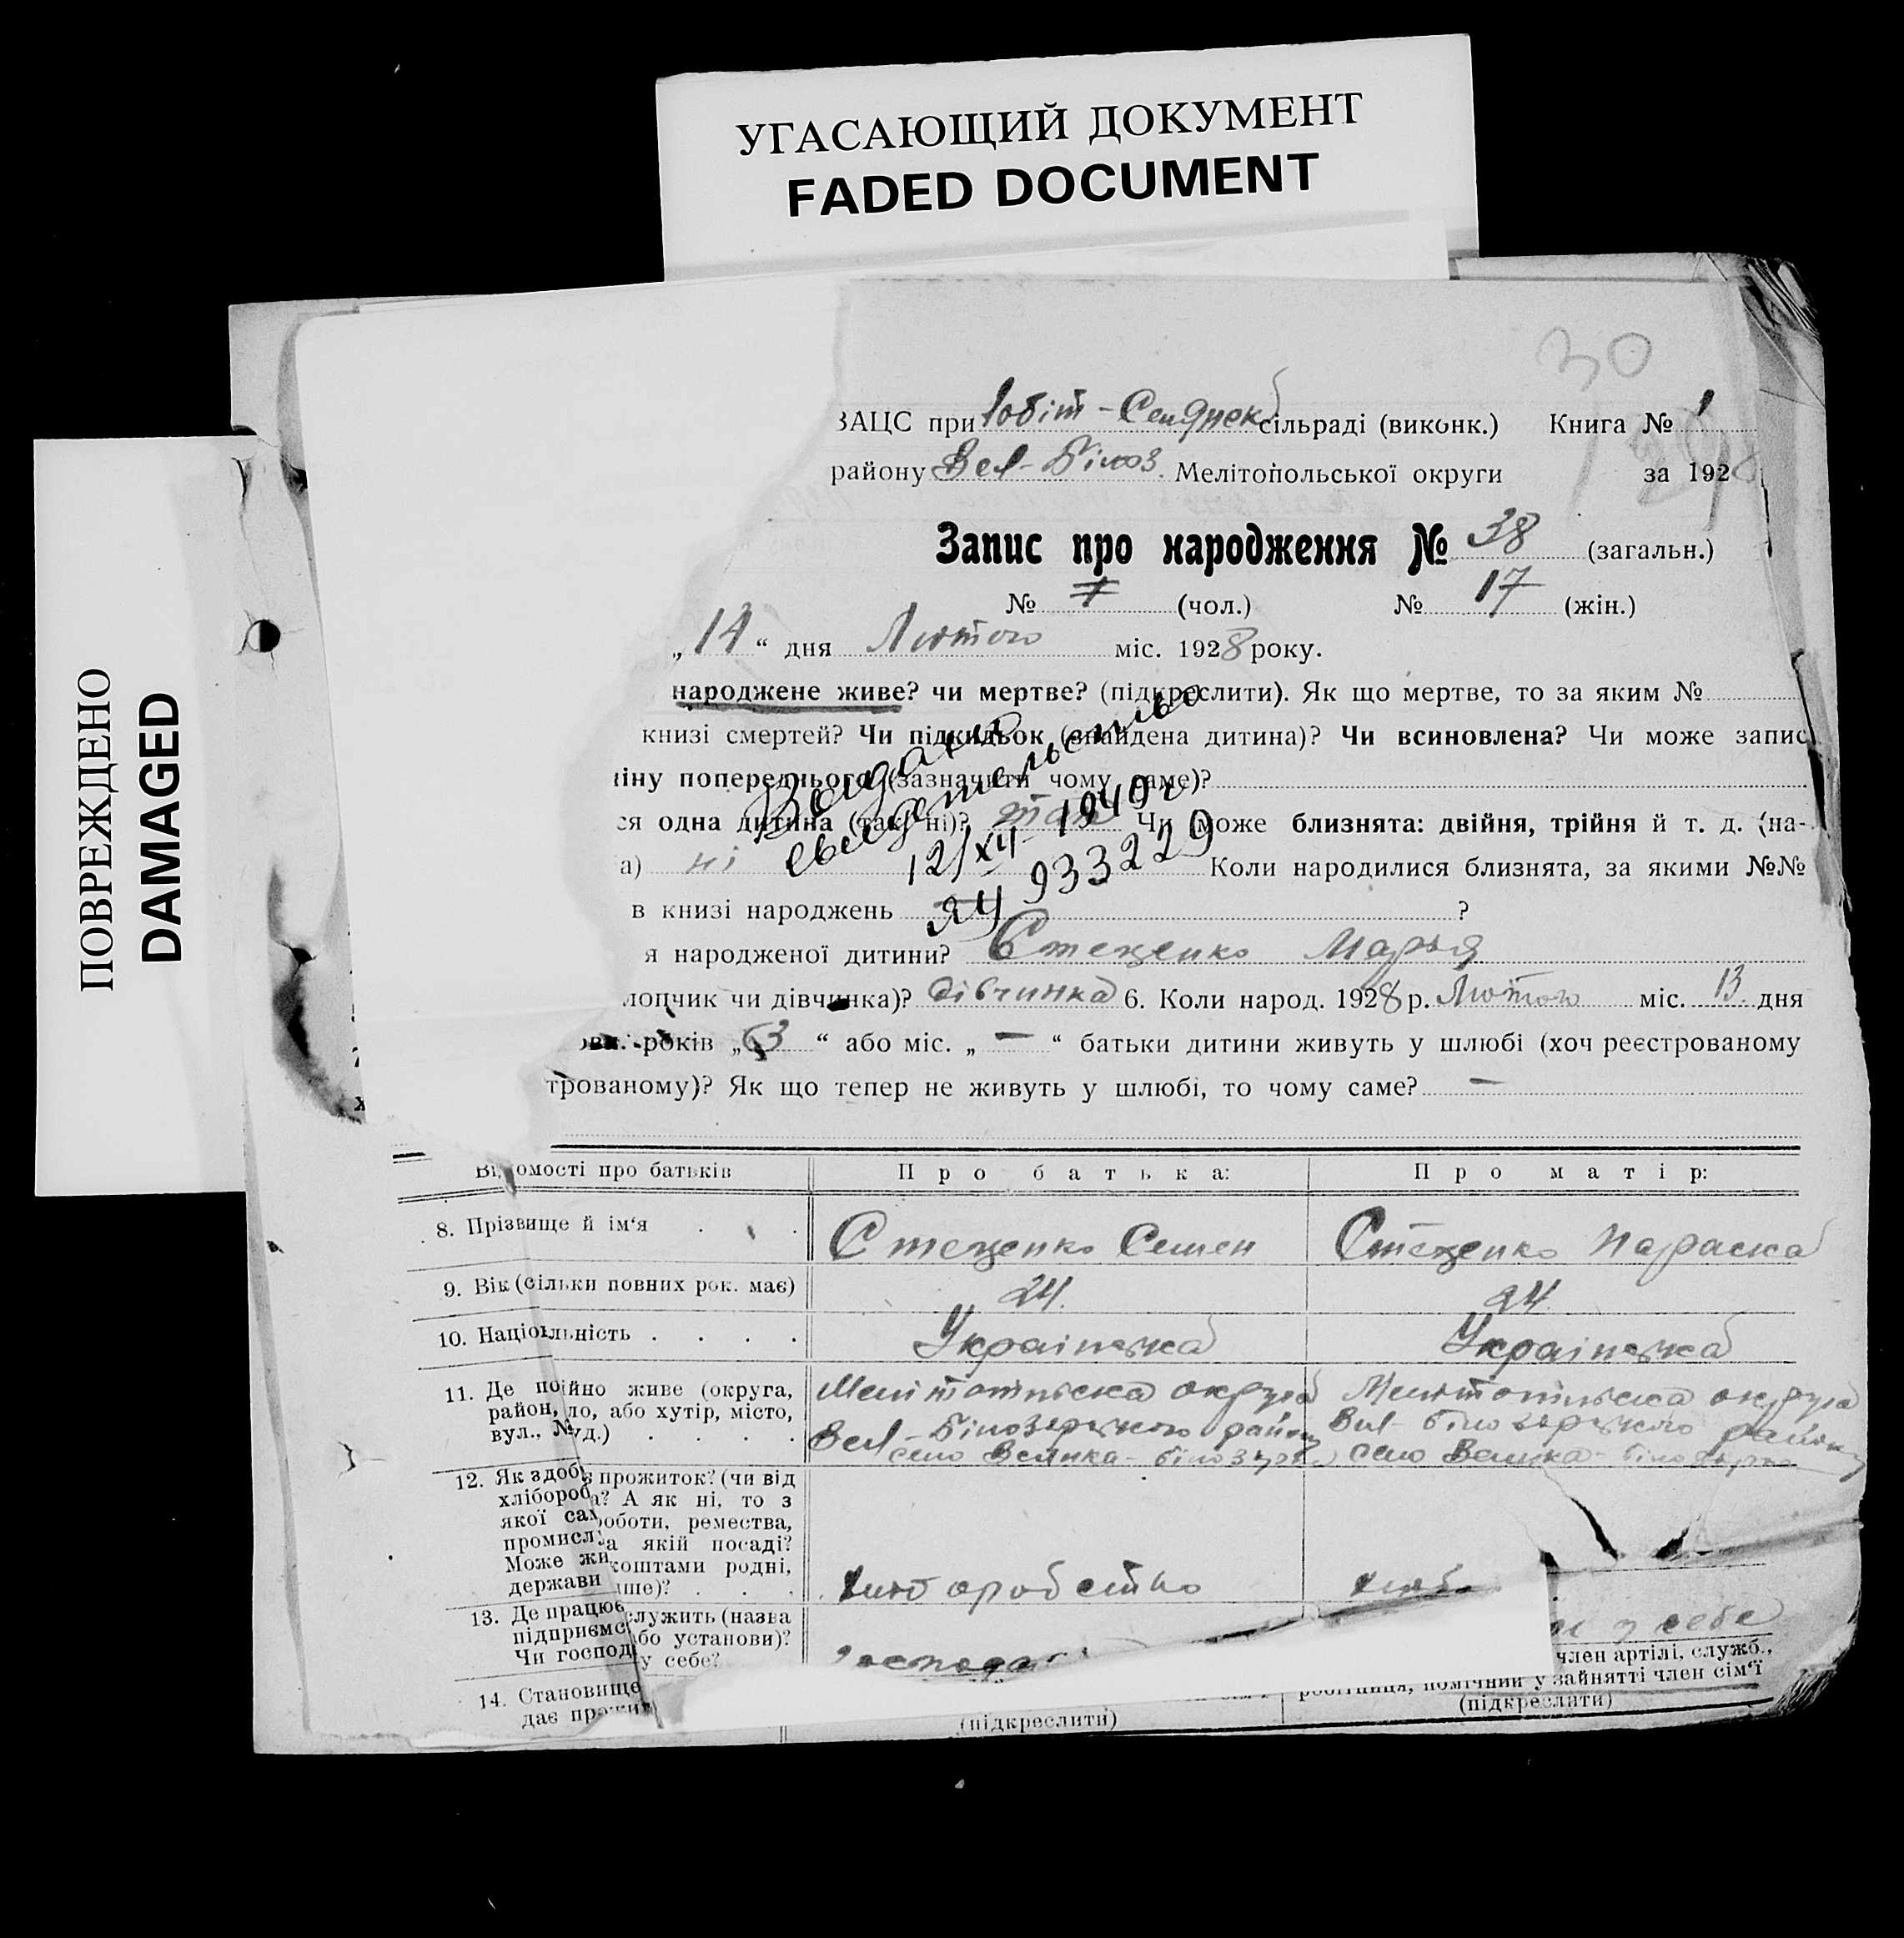 УГАСАЮЩИЙ ДОКУМЕНТ
FADED DOCUMENT
ПОВРЕЖДЕНО
DAMAGED
30
ЗАЦС при сільраді (виконк.) Книга № 1
району Вел-Білоз. Мелітопольської округи за 192
Запис про народження № 38 (загальн.)
№ (чол.) № 17 (жін.)
„14“ дня Лютого міс. 1928 року.
народжене живе? чи мертве? (підкреслити). Як що мертве, то за яким №
книзі смертей? Чи підкидьок (знайдена дитина)? Чи всиновлена? Чи може запис
іну попереднього (зазначити чому саме)?
ся одна дитина (так, ні)? так Чи може близнята: двійня, трійня й т. д. (на-
а) ні Коли народилися близнята, за якими №№
в книзі народжень ?
Выдано
свидетельство
12/XII 1940 г
ЯЧ 933229
я народженої дитини? Стеценко Марья
лопчик чи дівчинка)? дівчинка 6. Коли народ. 1928 р. Лютого міс. 13 дня
років „3“ або міс. „—“ батьки дитини живуть у шлюбі (хоч реєстрованому
трованому)? Як що тепер не живуть у шлюбі, то чому саме? —
Відомості про батьків Про батька: Про матір:
8. Прізвище й ім‘я Стеценко Семен Стеценко Параска
9. Вік (сільки повних рок. має) 24 24
10. Націоільність Українська Українська
11. Де пойно живе (округа, Мелітопільска округа Мелітопільска округа
район, ло, або хутір, місто, Вел-Білозерського району Вел-Білозерського району
вул., № уд.) село Велика- село Велика-
12. Як здоб прожиток? (чи від
хлібороб а? А як ні, то з
якої сам роботи, ремества,
промисл а якій посаді?
Може жи коштами родні,
держави ше)? хліборобство
13. Де працює служить (назва у себе
підприємс бо установи)?
Чи господ у себе? господа
член артілі, служб.,
14. Становище робітниця, помічний у зайнятті член сім‘ї
дає прожит (підкреслити) (підкреслити)